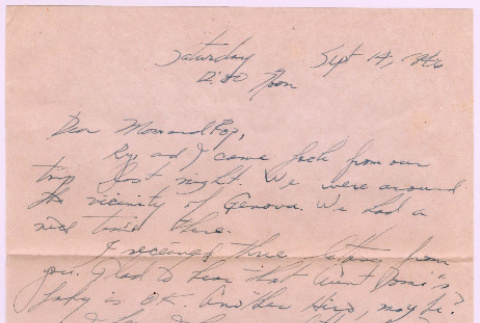 Saturday Sept 14, 1946
12:30 Noon
Dear Mom and Pop,
Ry and I came back from our
trip last night. We were around
the vicinity of Genova. We had a
nice time there.
I received three letters from
you. Glad to hear that Aunt Domi's
baby is OK. Another Hiro, maybe?